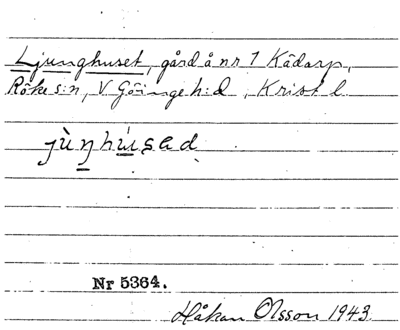 Ljunghuset, gård å nr 7 Kådarp,
Röke s:n, V Göinge h:d, Krist. l.
jùŋhúsad
Nr 5364.
Håkan Olsson 1943.